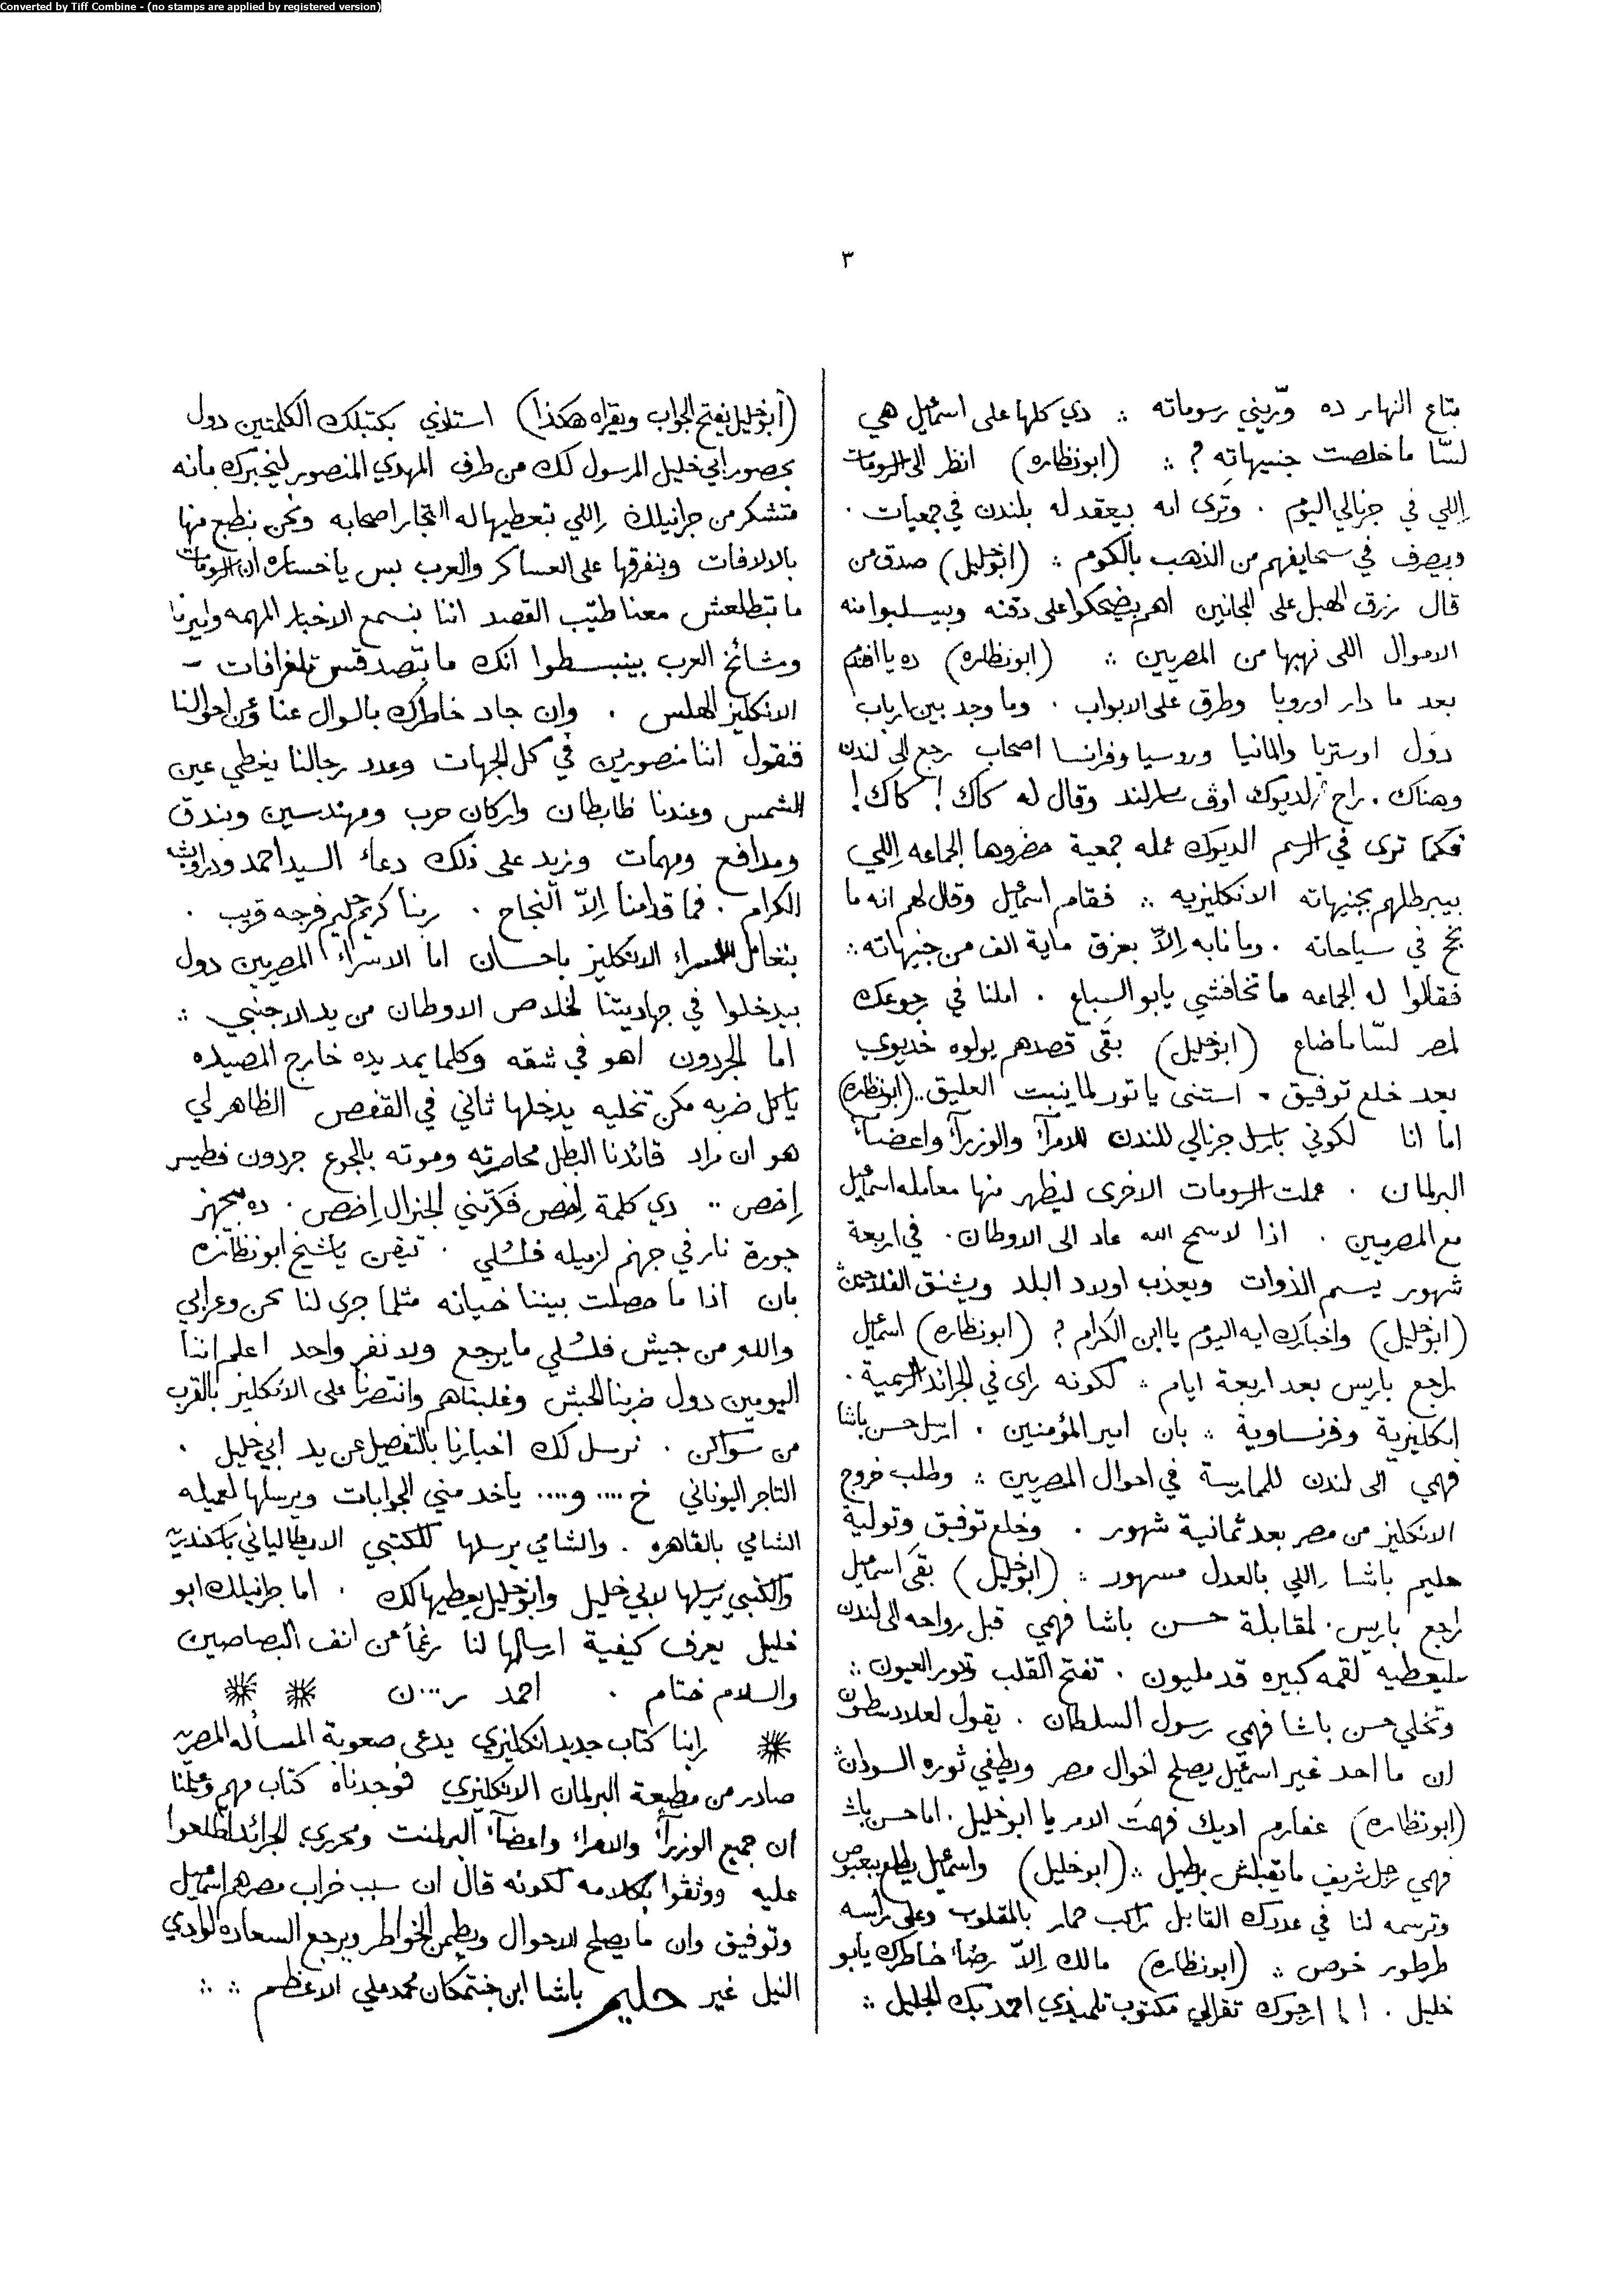 Converted by Tiff Combine - (no stamps are applied by registered version)
٣
بتاع النهار ده ورّيني رسوماته ∴ دي كلها على اسمعيل هي
لسّا ما خلصت جنيهاته ? ∴ (ابو نظاره) انظر الى الرسومات
اِللي في جرنالي اليوم . وترى انه بيعقد له بلندن في جمعيات .
وبيصرف في سحايفهم من الذهب بالكوم ∴ (ابو خليل) صدق من
قال رزق الهبل على المجانين اهم بيضحكوا على دقنه وبيسلبوا منه
الاموال اللى نهبها من المصريين ∴ (ابو نظاره) ده يا افندم
بعد ما دار اوروبا وطرق على الابواب . وما وجد بين ارباب
دول اوستريا والمانيا وروسيا وفرانسا اصحاب رجع الى لندن
وهناك . راح للديوك اوف سطرلند وقال له كاك ! كاك !
فكما ترى في الرسم الديوك عمله جمعية حضروها الجماعه اِللي
بيبرطلهم بجنيهاته الانكليزيه ∴ فقام اسمعيل وقال لهم انه ما
نجح في سياحاته . وما نابه اِلاّ بعزق ماية الف من جنيهاته ∴
فقالوا له الجماعه ما تخافشي يا بو السباع . املنا في رجوعك
لمصر لسّا ما ضاع (ابو خليل) بقى قصدهم يولوه خديوي
بعد خلع توفيق . استنى يا تور لما ينبت العليق .. (ابو نظاره)
اما انا لكوني بارسل جرنالي للندن للامرآء والوزرآء واعضآء
البرلمان . عملت الرسومات الاخرى ليظهر منها معامله اسمعيل
مع المصريين . اذا لا سمح الله عاد الى الاوطان . في اربعة
شهور يسم الذوات ويعذب اولاد البلد ويشنق الفلاحين
(ابو خليل) واخبارك ايه اليوم يا ابن الكرام ? (ابو نظاره) اسمعيل
راجع باريس بعد اربعة ايام ∴ لكونه راى في الجرائد الرسمية .
اِنكليزية وفرنساوية ∴ بان امير المؤمنين . ارسل حسن باشا
فهمي الى لندن للممارسة في احوال المصريين ∴ وطلب خروج
الانكليز من مصر بعد ثمانية شهور . وخلع توفيق وتولية
حليم باشا اللي بالعدل مسهور ∴ (ابو خليل) بقى اسمعيل
راجع باريس . لمقابلة حسن باشا فهمي قبل رواحه الى لندن
ليعطيه لقمه كبيره قد مليون . تفتح القلب وتدور العيون ∴
وتخلي حسن باشا فهمي رسول السلطان . يقول
ان ما احد غير اسمعيل يصلح احوال مصر ويطفي ثوره السودان
(ابو نظاره) عفارم اديك فهمت الامر يا ابو خليل . اما حسن باشا
فهمي رجل شريف ما يقبلش برطيل ∴ (ابو خليل) واسمعيل يطلع ببعبوص
وترسمه لنا في عددك القابل راكب حمار بالمقلوب وعلى رأسه
طرطور خوص ∴ (ابو نظاره) مالك اِلاّ رضاء خاطرك يا بو
خليل . ارجوك تقرالي مكتوب تلميذي احمد بك الجليل ∴
(ابو خليل يفتح الجواب ويقراه هكذا) استاذي بكتبلك الكلمتين دول
بحضور ابي خليل المرسول لك من طرف المهدي المنصور ليخبرك بانه
متشكر من جرانيلك اِللي بتعطيها له التجار اصحابه ونحن بنطبع منها
بالالافات وبنفرقها على العساكر والعرب بس يا خساره ان الرسومات
ما بتطلعش معنا طيّب القصد اننا بنسمع الاخبار المهمه واميرنا
ومشائخ العرب بينبسطوا انك ما بتصدقش تلغرافات -
الانكليز الهلس . وان جاد خاطرك بالسوال عنا وعن احوالنا
فنقول اننا منصورين في كل الجهات وعدد رجالنا يغطي عين
الشمس وعندنا ظابطان واركان حرب ومهندسين وبندق
ومدافع ومهمات ونزيد على ذلك دعاء السيد احمد ودراويشه
الكرام . فما قدامنا اِلاّ النجاح . ربنا كريم حليم فرجه قريب .
بنعامل الاسراء الانكليز باحسان اما الاسراء المصريين دول
بيدخلوا في جهاديتنا لخلاص الاوطان من يد الاجنبي ∴
اما الجردون اهو في شقه وكلما يمد يده خارج المصيده
ياكل ضربه مكن تخليه يدخلها ثاني في القفص الظاهر لي
هو ان مراد قائدنا البطل محاصرته وموته بالجوع جردون فطيس
اِخص .. دي كلمة اِخص فكرتني الجنرال اِخص . ده مجهز
جورة نار في جهنم لزميله فلسُلي . تيقن يا شيخ ابو نظاره
بان اذا ما حصلت بيننا خيانه مثلما جرى لنا نحن وعرابي
والله من جيش فلسُلي ما يرجع ولا نفر واحد اعلم اننا
اليومين دول ضربنا الحبش وغلبناهم وانتصرنا على الانكليز بالقرب
من سواكن . نرسل لك اخبارنا بالتفصيل عن يد ابي خليل .
التاجر اليوناني خ .... و .... ياخد مني الجوابات ويرسلها لعميله
الشامي بالقاهره . والشامي يرسلها للكتبي الايطالياني باسكندريه
والكتبي يرسلها لابي خليل وابو خليل يعطيها لك . اما جرانيلك ابو
خليل يعرف كيفية ارسالها لنا رغمًا من انف البصاصين
والسلام ختام . احمد ر...ن
راينا كتاب جديد انكليزي يدعى صعوبة المسأله المصريه
صادر من مطبعة البرلمان الانكليزي فوجدناه كتاب مهم وعلمنا
ان جميع الوزرآء والامراء واعضآء البرلمنت ومحرري الجرائد اطلعوا
عليه ووثقوا بكلامه لكونه قال ان سبب خراب مصر هم اسمعيل
وتوفيق وان ما يصلح الاحوال ويطمن الخواطر ويرجع السعاده لوادي
النيل غير حليم باشا ابن جنتمكان محمد علي الاعظم ∴ ∴